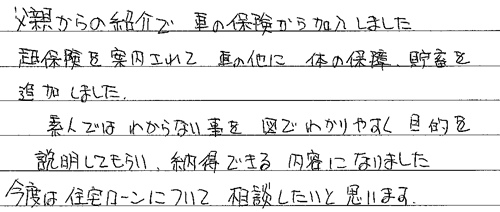 父親からの紹介で 車の保険から加入しました
超保険を案内されて 車の他に 体の保障、貯蓄を
追加しました。
素人ではわからない事を 図でわかりやすく 目的を
説明してもらい、納得できる 内容になりました
今度は住宅ローンについて 相談したいと思います。